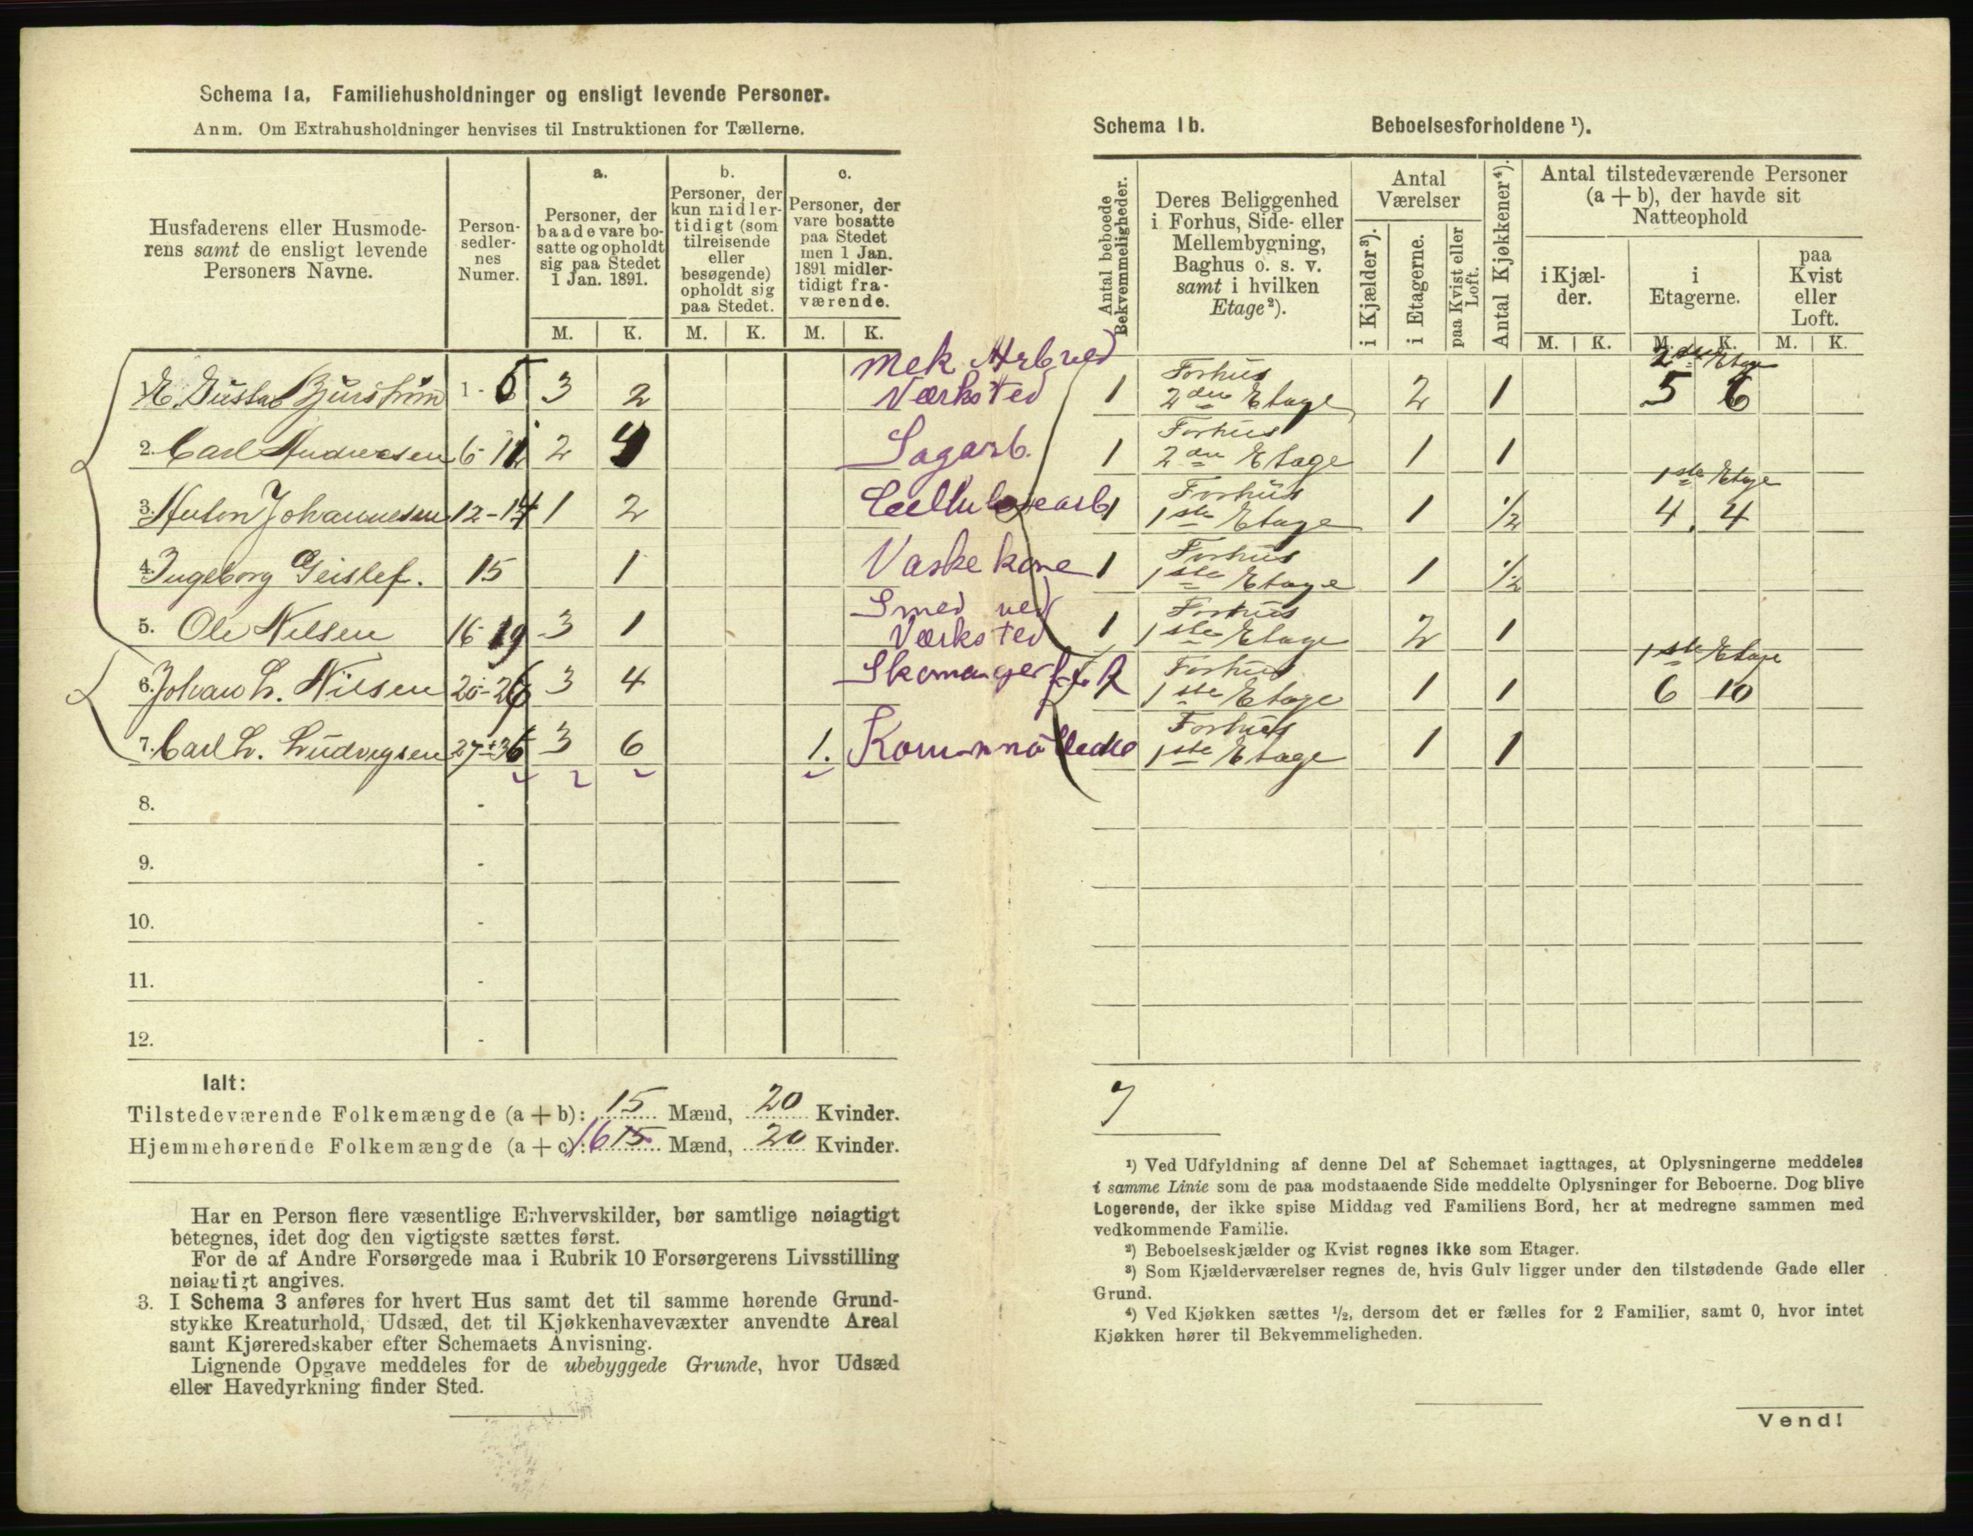 Schema 1a. Familiehusholdninger og ensligt levende Personer.
Anm. Om Extrahusholdninger henvises til Instruktionen for Tællerne.
Husfaderens eller Husmoderens samt de ensligt levende Personers Navne.
Personsedlernes Numer.
a.
Personer, der baade vare bosatte og opholdt sig paa Stedet 1 Jan. 1891.
b.
Personer, der kun midlertidigt (som tilreisende eller besøgende) opholdt sig paa Stedet.
c.
Personer, der vare bosatte paa Stedet men 1 Jan. 1891 midlertidigt fraværende.
M. K. M. K. M. K.
Gustav Bjurstrøm 1-5 3 2 Mek Arb ved Værksted
2. Carl Andresen 6-11 2 4 Sagarb.
3. Anton Johannesen 12-14 1 2 Cellulosearb
4. Ingeborg 15 1 Vaskekone
5. Ole Nilsen 16-19 3 1 Smed ved Værksted
6. Johan L. Nilsen 20-26 3 4
7. Carl L. Ludvigsen 27-35 3 6 1.
8. -
9. -
10. -
11. -
12. -
Ialt:
Tilstedeværende Folkemængde (a + b): 15 Mænd, 20 Kvinder.
Hjemmehørende Folkemængde (a + c): 16 15 Mænd, 20 Kvinder.
Har en Person flere væsentlige Erhvervskilder, bør samtlige nøiagtigt
betegnes, idet dog den vigtigste sættes først.
For de af Andre Forsørgede maa i Rubrik 10 Forsørgerens Livsstilling
nøiagtigt angives.
3. I Schema 3 anføres for hvert Hus samt det til samme hørende Grund-
stykke Kreaturhold, Udsæd, det til Kjøkkenhavevæxter anvendte Areal
samt Kjøreredskaber efter Schemaets Anvisning.
Lignende Opgave meddeles for de ubebyggede Grunde, hvor Udsæd
eller Havedyrkning finder Sted.
Schema 1b. Beboelsesforholdene ¹).
Antal beboede Bekvemmeligheder.
Deres Beliggenhed i Forhus, Side- eller Mellembygning, Baghus o. s. v. samt i hvilken Etage ²).
Antal Værelser
i Kjælder ³).
i Etagerne.
paa Kvist eller Loft.
Antal Kjøkkener ⁴).
Antal tilstedeværende Personer (a + b), der havde sit Natteophold
i Kjælder.
i Etagerne.
paa Kvist eller Loft.
M. K. M. K. M. K.
2den Etage
1 Forhus 2den Etage 2 1 5 6
1 Forhus 2den Etage 1 1
1ste Etage
1 Forhus 1ste Etage 1 1/2 4 4
1 Forhus 1ste Etage 1 1/2
1 Forhus 1ste Etage 2 1
1ste Etage
Forhus 1ste Etage 1 1 6 10
Forhus 1ste Etage 1 1
7
¹) Ved Udfyldning af denne Del af Schemaet iagttages, at Oplysningerne meddeles
i samme Linie som de paa modstaaende Side meddelte Oplysninger for Beboerne. Dog blive
Logerende, der ikke spise Middag ved Familiens Bord, her at medregne sammen med
vedkommende Familie.
²) Beboelseskjælder og Kvist regnes ikke som Etager.
³) Som Kjælderværelser regnes de, hvis Gulv ligger under den tilstødende Gade eller
Grund.
⁴) Ved Kjøkken sættes ½, dersom det er fælles for 2 Familier, samt 0, hvor intet
Kjøkken hører til Bekvemmeligheden.
Vend!